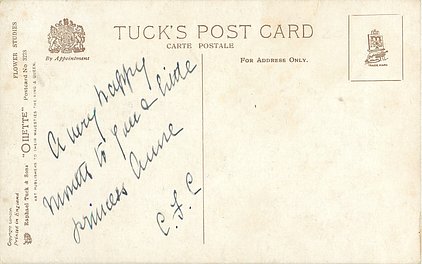 TUCK'S POST CARD
CARTE POSTALE
By Appointment
FOR ADDRESS ONLY.
TRADE MARK
A very happy
to you & little
princess Anne
C. F. C
FLOWER STUDIES
Postcard No. 3283
"OILETTE"
ART PUBLISHERS TO THEIR MAJESTIES THE KING & QUEEN.
Raphael Tuck & Sons
Copyright London.
Printed in England